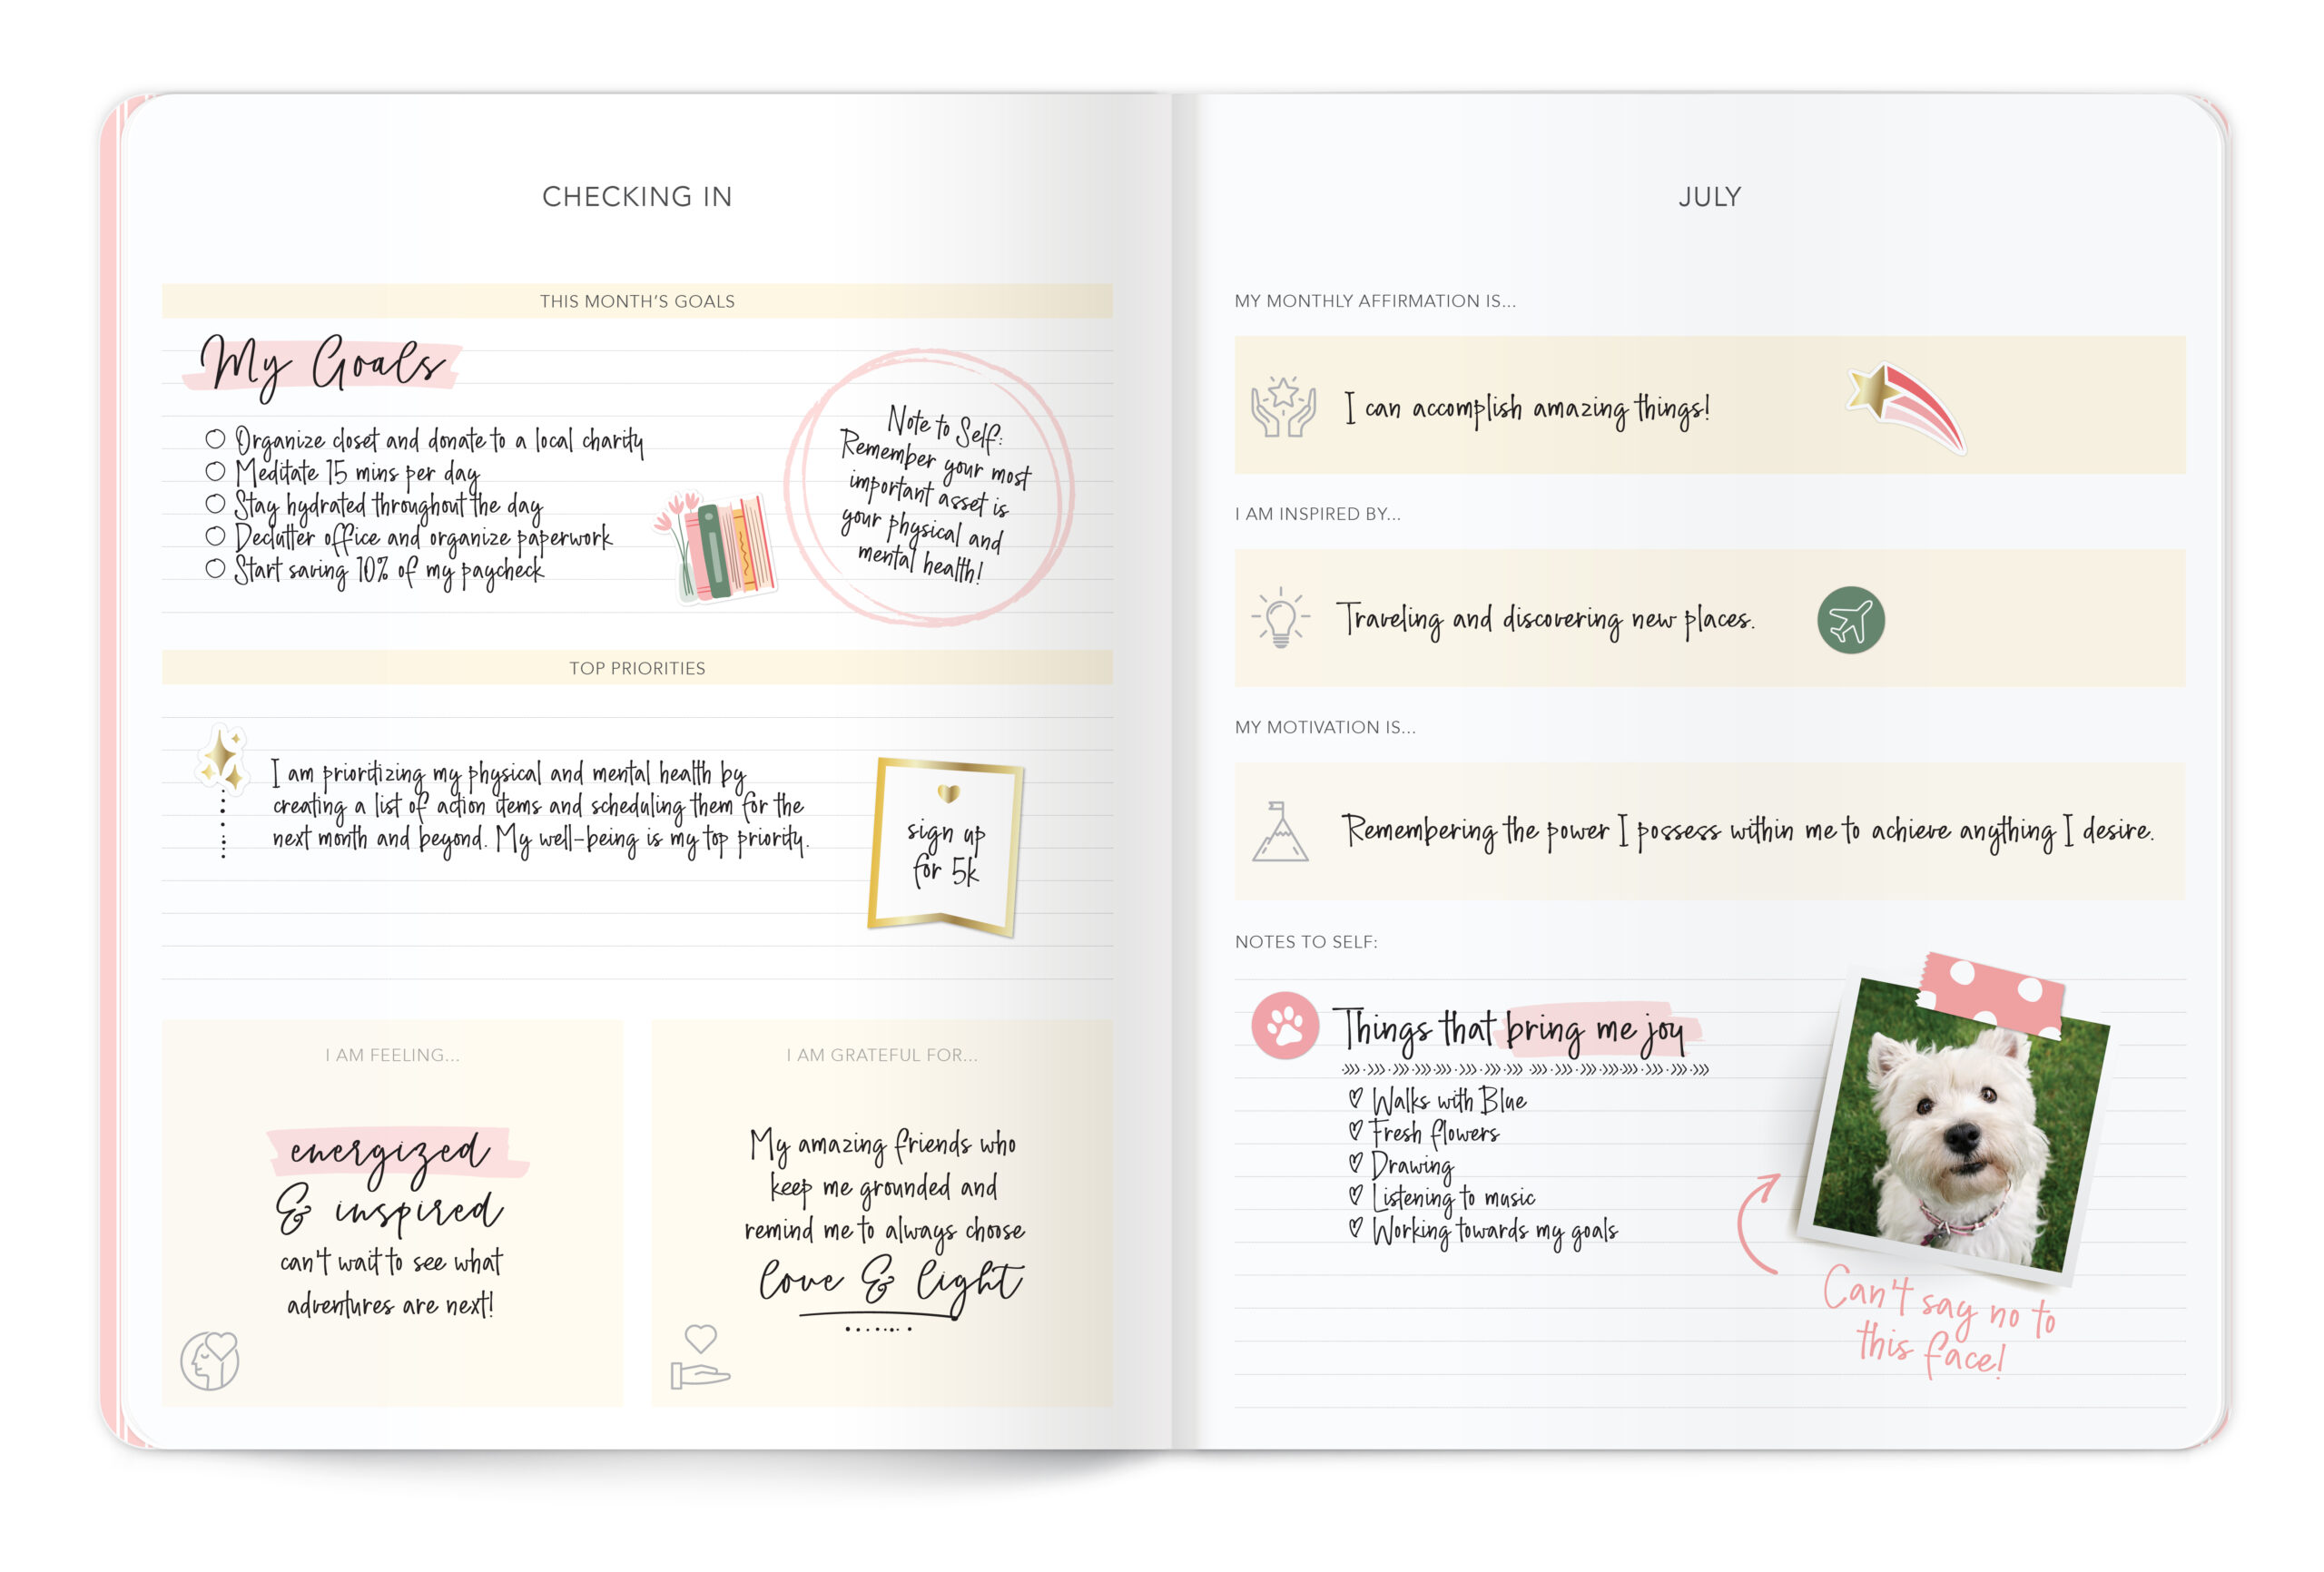 CHECKING IN
THIS MONTH'S GOALS
My Goals
Organize closet and donate to a local charity
Meditate 15 mins per day
Stay hydrated throughout the day
Declutter office and organize paperwork
Start saving 10% of my paycheck
Note to Self:
Remember your most
important asset is
your physical and
mental health!
TOP PRIORITIES
I am prioritizing my physical and mental health by
creating a list of action items and scheduling them for the
next month and beyond. My well-being is my top priority.
sign up
for 5k
I AM FEELING...
energized
& inspired
can't wait to see what
adventures are next!
I AM GRATEFUL FOR...
My amazing friends who
keep me grounded and
remind me to always choose
love & light
JULY
MY MONTHLY AFFIRMATION IS...
I can accomplish amazing things!
I AM INSPIRED BY...
Traveling and discovering new places.
MY MOTIVATION IS...
Remembering the power I possess within me to achieve anything I desire.
NOTES TO SELF:
Things that bring me joy
Walks with Blue
Fresh flowers
Drawing
Listening to music
Working towards my goals
Can't say no to
this face!